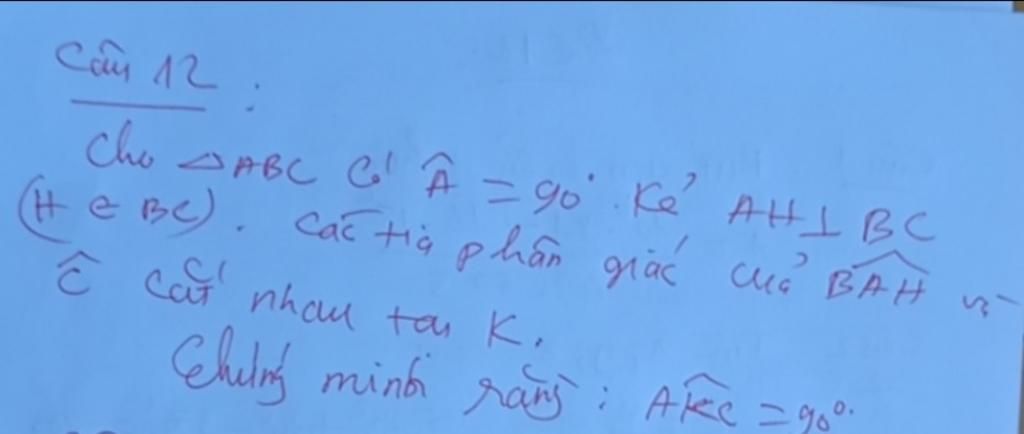 Câu 12 :
Cho △ABC Có Â = 90°. Kẻ AH⊥BC
(H ∈ BC). Các tia phân giác của BAH và
Ĉ cắt nhau tại K.
Chứng minh rằng : AKC = 90°.